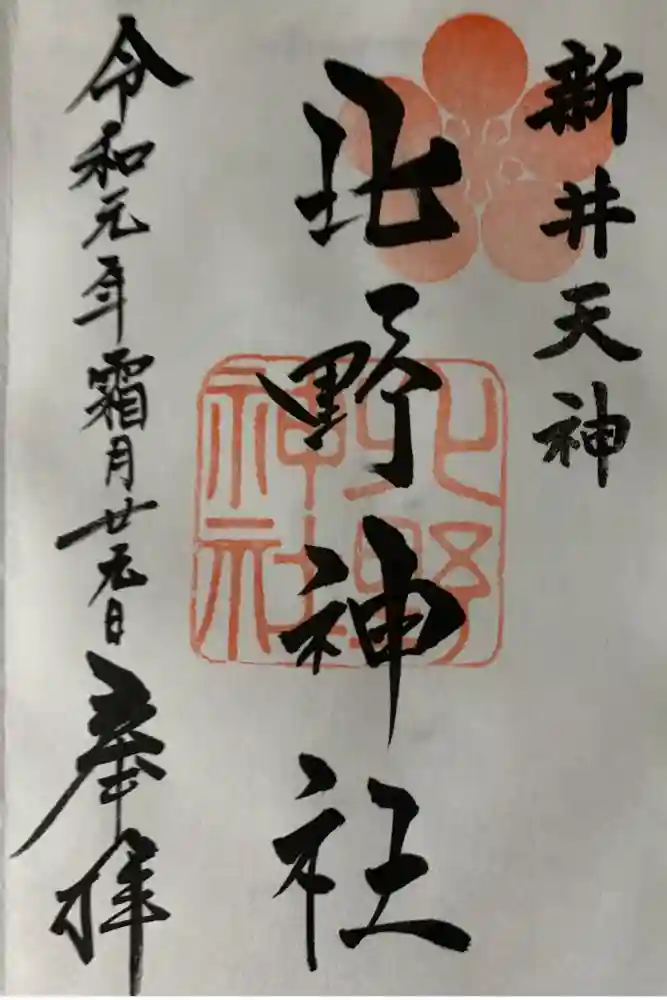 新井天神
北野神社
令和元年霜月廿元日
奉拝
北野
神社